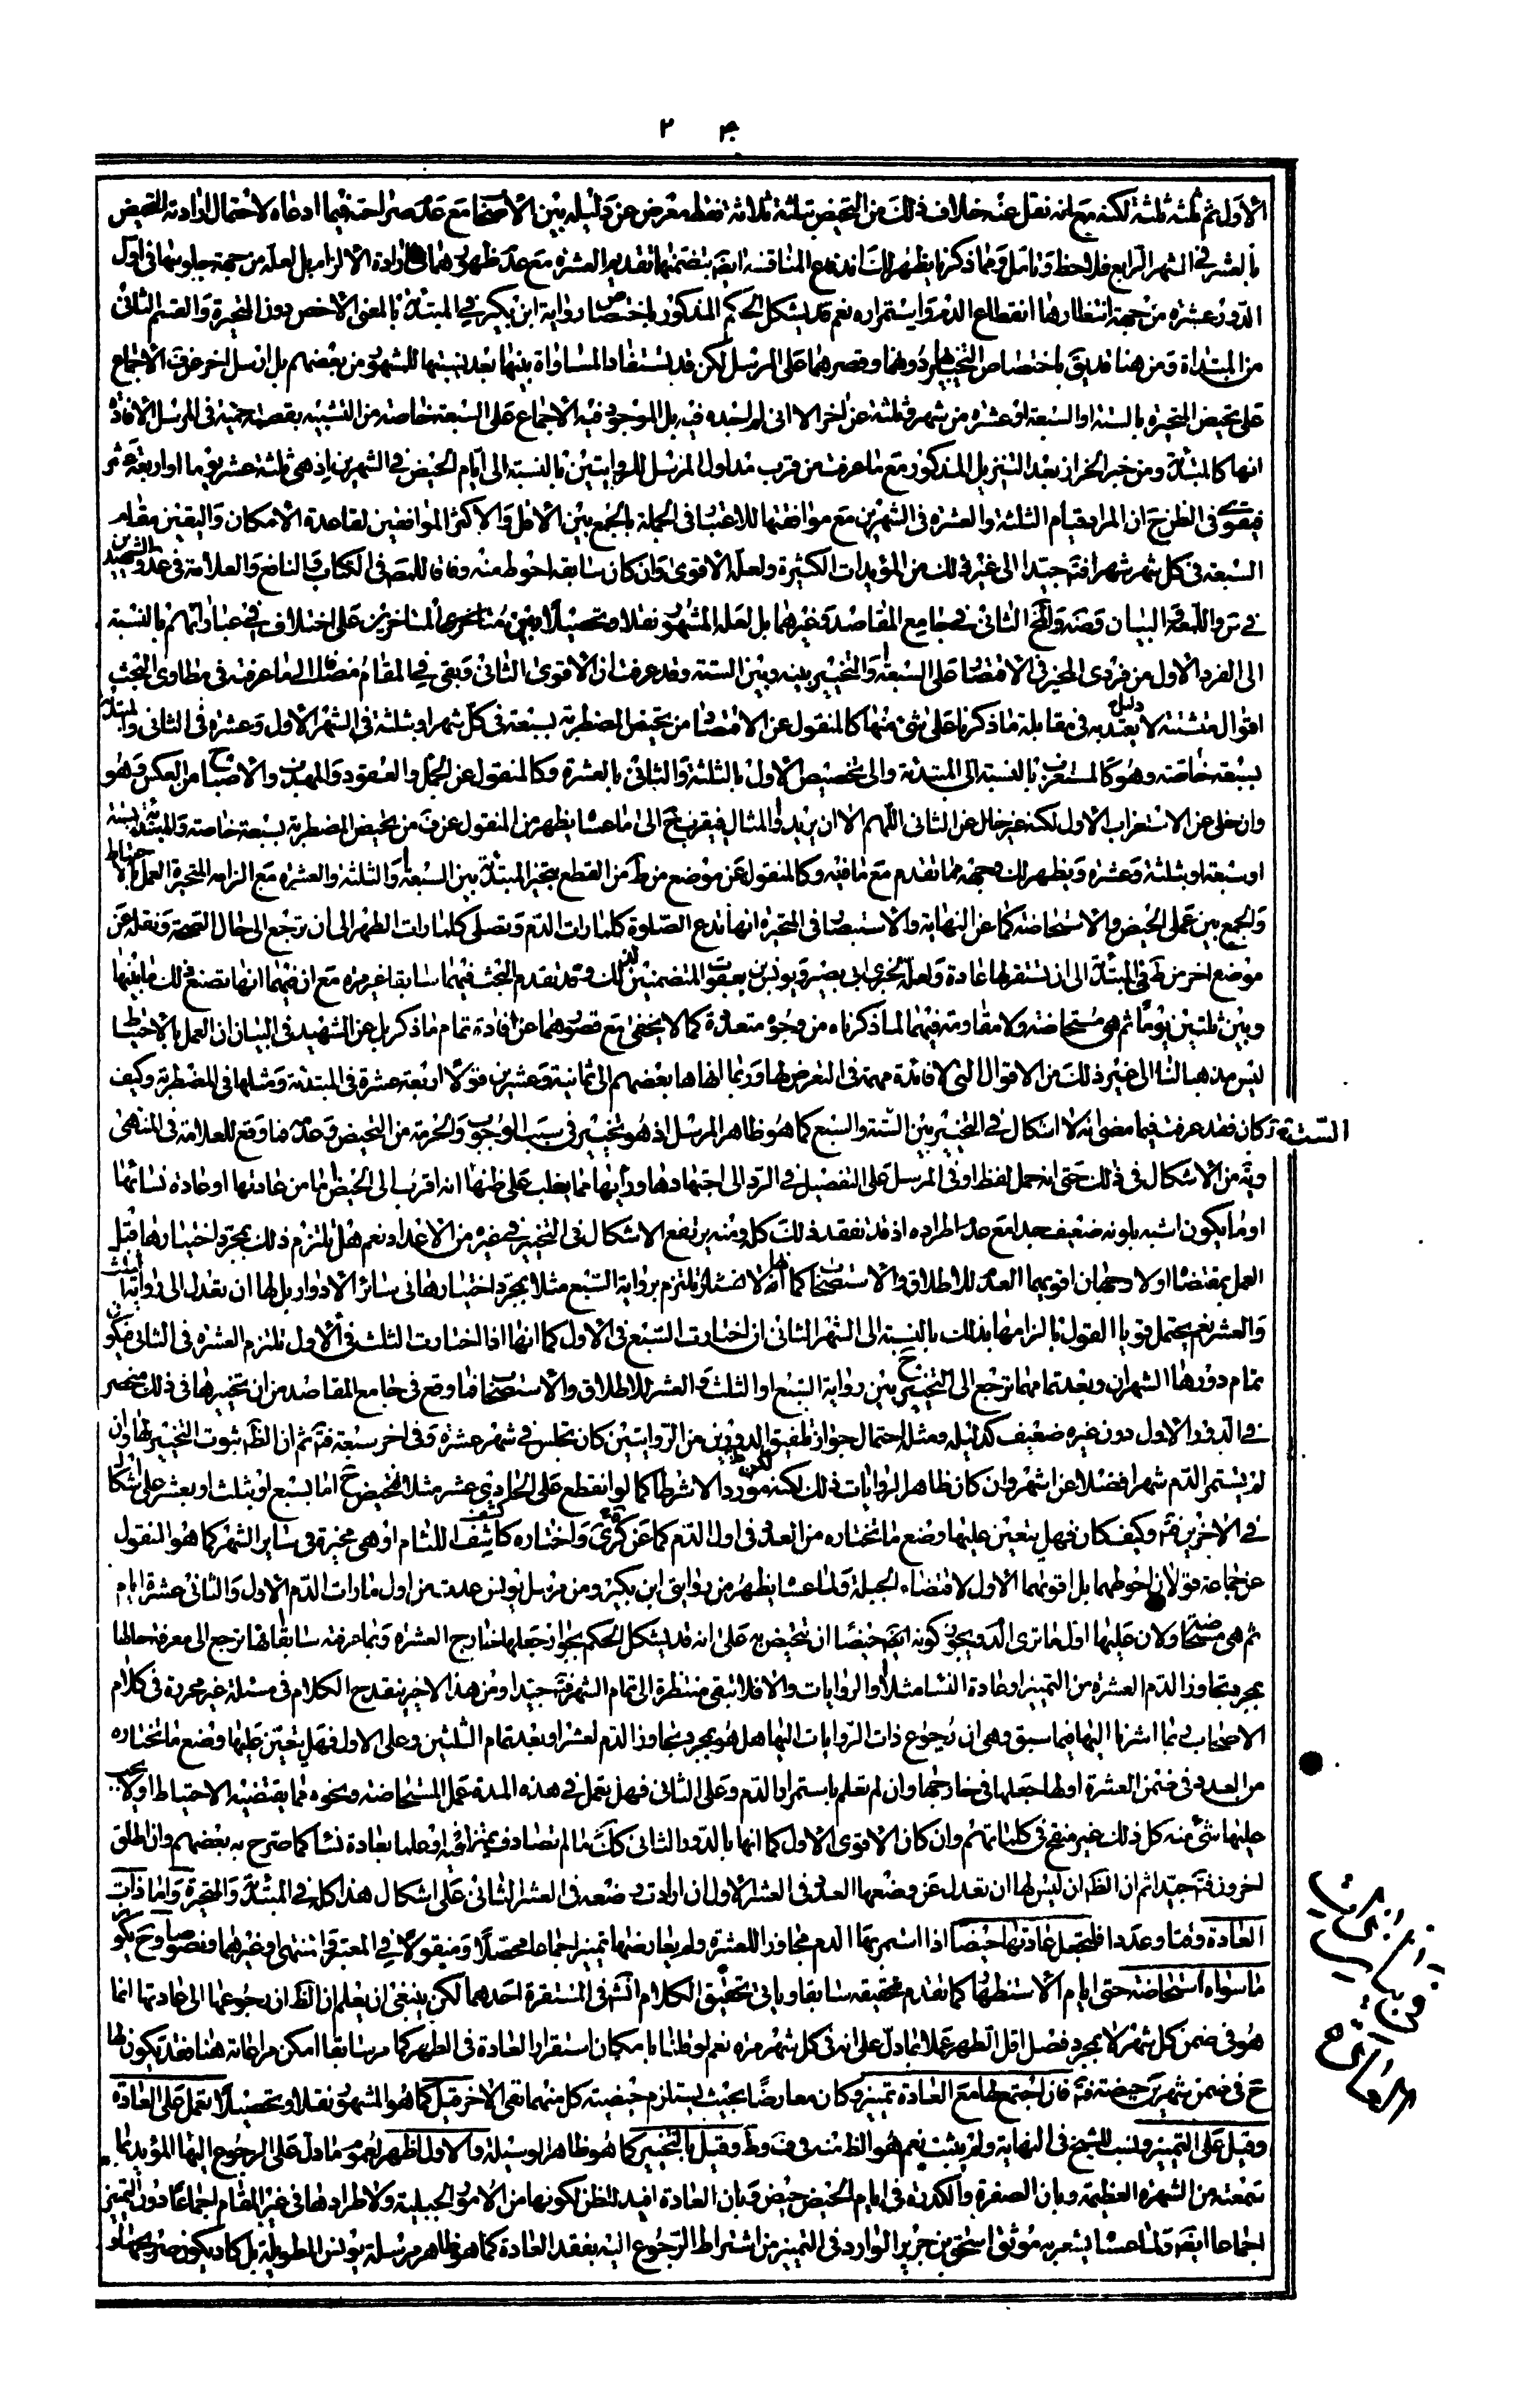 ج ٢
الاول ثم ثلثة ثلثة لكنه مع انه نقل عنه خلاف ذلك من التحيض بثلثة ثلاثة فقط معرض عن دليله بين الأصحاب مع عدم صراحته فيما ادعاه لاحتمال ارادته التحيض
بالعشر في الشهر الرابع فلاحظ وتامل ومما ذكرنا يظهر لك اندفاع المناقشة ايضا بتضمنها تقديم العشرة مع عدم ظهورهما في ارادة الالزام بل لعله من جهة جلوسها في اول
الدور عشرة من جهة انتظارها انقطاع الدم واستمراره نعم قد يشكل الحكم المذكور باختصاص رواية ابن بكير في المبتدئة بالمعنى الاخص دون المتحيرة والقسم الثاني
من المبتداة ومن هنا قد يق باختصاص التخيير بها دونهما وقصرهما على المرسل لكن قد يستفاد المساواة بينها بعد نسبتها للشهور من بعضهم بل ارسل اخر عن ف الاجماع
على تحيض المتحيرة بالستة او السبعة او عشرة من شهر وثلثة عن اخر الا اني لم اجده فيه بل الموجود فيه الاجماع على السبعة خاصة من التشبيه بقصة حمنة في المرسل الافادة
انها كالمبتدئة ومن خبر الخزاز بعد التنزيل المذكور مع ما عرفت من قرب مداول المرسل للروايتين بالنسبة الى ايام الحيض في الشهرين اذ هي ثلثة عشر يوما او اربعة عشر
فيقوى في الظن ح ان المراد قيام الثلثة والعشرة في الشهرين مع موافقتها للاعتبار في الجملة بالجمع بين الاقل والاكثر الموافقين لقاعدة الامكان واليقين مقام
السبعة في كل شهر شهر افتم جيدا الى غير ذلك من المؤيدات الكثيرة ولعله الاقوى وان كان سابقه احوط منه وفاقا للمص في الكتاب والنافع والعلامة في عد والشهيدين
في س واللمعة والبيان وضة والمحقق الثاني في جامع المقاصد وغيرهما بل لعله المشهور نقلا وتحصيلا بين متاخري المتاخرين على اختلاف في عباراتهم بالنسبة
الى الفرد الاول من فردي المخير في الاقتصار على السبعة والتخيير بينه وبين الستة وقد عرفت ان الاقوى الثاني وبقي في المقام مضافا الى ما عرفته في مطاوي البحث
اقوال متشتتة لا دليل يعتد به في مقابلة ما ذكرنا على شئ منها كالمنقول عن الاقتصاد من تحيض المضطربة بسبعة في كل شهر او بثلثة في الشهر الاول وعشرة في الثاني والمبتدئة
بسبعة خاصة وهو كالمستغرب بالنسبة الى المبتدئة والى تخصيص الاول بالثلثة والثاني بالعشرة وكالمنقول عن الجمل والعقود والمهذب والاصباح من العكس وهو
وان خلى عن الاستغراب الاول لكنه غير خال عن الثاني اللهم الا ان يريدوا المثال فيقرب ح الى ما عساه يظهر من المنقول عن ف من تحيض المضطربة بسبعة خاصة والمبتدئة بستة
او سبعة او بثلثة وعشرة ويظهر لك وجهه مما تقدم مع ما فيه وكالمنقول عن موضع من ط من القطع بتخير المبتدئة بين السبعة والثلثة والعشرة مع الزامه المتحيرة العمل بالاحتياط
والجمع بين عملي الحيض والاستحاضة كما عن النهاية والاستبصار في المتحيرة انها تدع الصلوة كلما رات الدم وتصلي كلما رات الطهر الى ان ترجع الى حال الصحة ونقله عن
موضع اخر من ط في المبتدئة الى ان تستقر لها عادة ولعله لخبري ابي بصير ويونس بن يعقوب المتضمنين لذلك وقد تقدم البحث فيهما سابقا غير مرة مع ان فيهما انها تصنع ذلك ما بينها
وبين ثلثين يوما ثم هي مستحاضة ولا مقاومة فيهما لما ذكرناه من وجوه متعددة كما لا يخفى مع قصورهما عن افادة تمام ما ذكر بل عن الشهيد في البيان ان العمل بالاحتياط
ليس مذهبا لنا الى غير ذلك من الاقوال التي لا فائدة مهمة في التعرض لها وربما انهاها بعضهم الى ثمانية وعشرين قولا اربعة عشرة في المبتدئة ومثلها في المضطربة وكيف
كان فقد عرفت فيما مضى انه لا اشكال في التخيير بين الستة والسبع كما هو ظاهر المرسل اذ هو تخيير في سبب الوجوب والحرمة من التحيض وعدمه فما وقع للعلامة في المنتهى
وية من الاشكال في ذلك حتى انه حمل لفظ او في المرسل على التفصيل في الرد الى اجتهادها ورايها فما يغلب على ظنها انه اقرب الى الحيض اما من عادتها او عادة نسائها
او ما يكون اشبه بلونه ضعيف جدا مع عدم اطراده اذ قد تفقد ذلك كله ومنه يرتفع الاشكال في التخيير في غيره من الاعداد نعم هل تلتزم ذلك بمجرد اختيارها قبل
العمل بمقتضاه اولا وجهان اقويهما العدم للاطلاق والاستصحاب كما انه لا تلتزم برواية السبع مثلا بمجرد اختيارها في سائر الادوار بل لها ان تعدل الى روايتا الثلث
والعشر نعم يحتمل قويا القول بالزامها بذلك بالنسبة الى الشهر الثاني ان اختارت السبع في الاول كما انها اذا اختارت الثلث في الاول تلتزم العشرة في الثاني فيكون
تمام دورها الشهران وبعد تمامهما ترجع الى التخيير ح بين رواية السبع او الثلث والعشر للاطلاق والاستصحاب فما وقع في جامع المقاصد من ان تخييرها في ذلك منحصر
في الدور الاول دون غيره ضعيف كدليله ومثله احتمال جواز تلفيق الدورين من الروايتين كان تجلس في شهر عشرة وفي اخر سبعة فتم ثم ان الظ ثبوت التخيير لها وان
لم يستمر الدم شهرا فضلا عن اشهر وان كان ظاهر الروايات ذلك لكنه مورد لا شرط كما لو انقطع على الحادي عشر مثلا فتحيض ح اما بسبع او بثلث او بعشر على اشكال
في الاخرين فتم وكيف كان فهل يتعين عليها وضع ما تختاره من العدد في اول الدم كما عن كرى واختاره كاشف اللثام او هي مخيرة في ساير الشهر كما هو المنقول
عن جماعة قولان احوطهما بل اقويهما الاول لاقتضاء الجبلة ولما عساه يظهر من روايتي ابن بكير ومن مرسل يونس عدته من اول ما رات الدم الاول والثاني عشرة ايام
ثم هي مستحاضة ولان عليها اول ما ترى الدم ويجوز كونه ايضا حيضا ان تتحيض به على انه قد يشكل الحكم بجواز جعلها خارج العشرة وبما عرفته سابقا انها ترجع الى معرفة حالها
بمجرد تجاوز الدم العشرة من التمييز او عادة النسا مثلا او الروايات والا فلا تبقى منتظرة الى تمام الشهر فتم جيدا ومن هذا الاخير ينقدح الكلام في مسئلة غير محررة في كلام
الاصحاب ربما اشرنا اليها فيما سبق وهي ان رجوع ذات الروايات اليها هل هو بمجرد تجاوز الدم لعشر او بعد تمام الثلثين وعلى الاول فهل يتعين عليها وضع ما تختاره
من العدد في ضمن العشرة او لها جعلها في خارجها وان لم تعلم باستمرار الدم وعلى الثاني فهل تعمل في هذه المدة عمل المستحاضة ونحوه مما يقتضيه الاحتياط اولا يجب
عليها شئ منه كل ذلك غير منقح في كلماتهم وان كان الاقوى الاول كما انها بالدور الثاني كك ما لم تصادف تميزا فيه او علما بعادة نسا كما صرح به بعضهم وان اطلق
اخرون فتم جيدا ثم ان الظ ان ليس لها ان تعدل عن وضعها العدد في العشر الاول ان ارادت وضعه في العشر الثاني على اشكال هذا كله في المبتدئة والمتحيرة واما ذات
العادة وقتا وعددا فلتجعل عادتها حيضا اذا استمر بها الدم مجاوزا للعشرة ولم يعارضها تميز اجماعا محصلا ومنقولا في المعتبر والمنتهى وغيرهما ونصوصا وح يكون
ما سواه استحاضة حتى ايام الاستظهار كما تقدم تحقيقه سابقا وياتي تحقيق الكلام انش في المستقرة احدهما لكن ينبغي ان يعلم ان الظ ان رجوعها الى عادتها انما
هو في ضمن كل شهر لا بمجرد فصل اقل الطهر عملا بما دل على انه في كل شهر مرة نعم لو قلنا بامكان استقرار العادة في الطهر كما مر سابقا امكن مراعاته هنا فقد تكون لها
ح في ضمن شهرين حيضة فتم فان اجتمع لها مع العادة تميز وكان معارضا بحيث يستلزم حيضية كل منهما نفي الاخر قيل كما هو المشهور نقلا وتحصيلا تعمل على العادة
وقيل على التميز ونسب للشيخ في النهاية ولم يثبت نعم هو الظ منه في ف وط وقيل بالتخيير كما هو ظاهر الوسيلة والاول اظهر لعموم ما دل على الرجوع اليها المؤيد بما
سمعته من الشهرة العظيمة وبان الصفرة والكدرة في ايام الحيض حيض وبان العادة افيد للظن لكونها من الامور الجبلية ولاطرادها في غير المقام اجماعا دون التميز
اجماعا ايضا ولما عساه يشعر به موثق اسحق بن جرير الوارد في التميز من اشتراط الرجوع اليه بفقد العادة كما هو ظاهر مرسلة يونس الطويلة بل كاد يكون صريحها